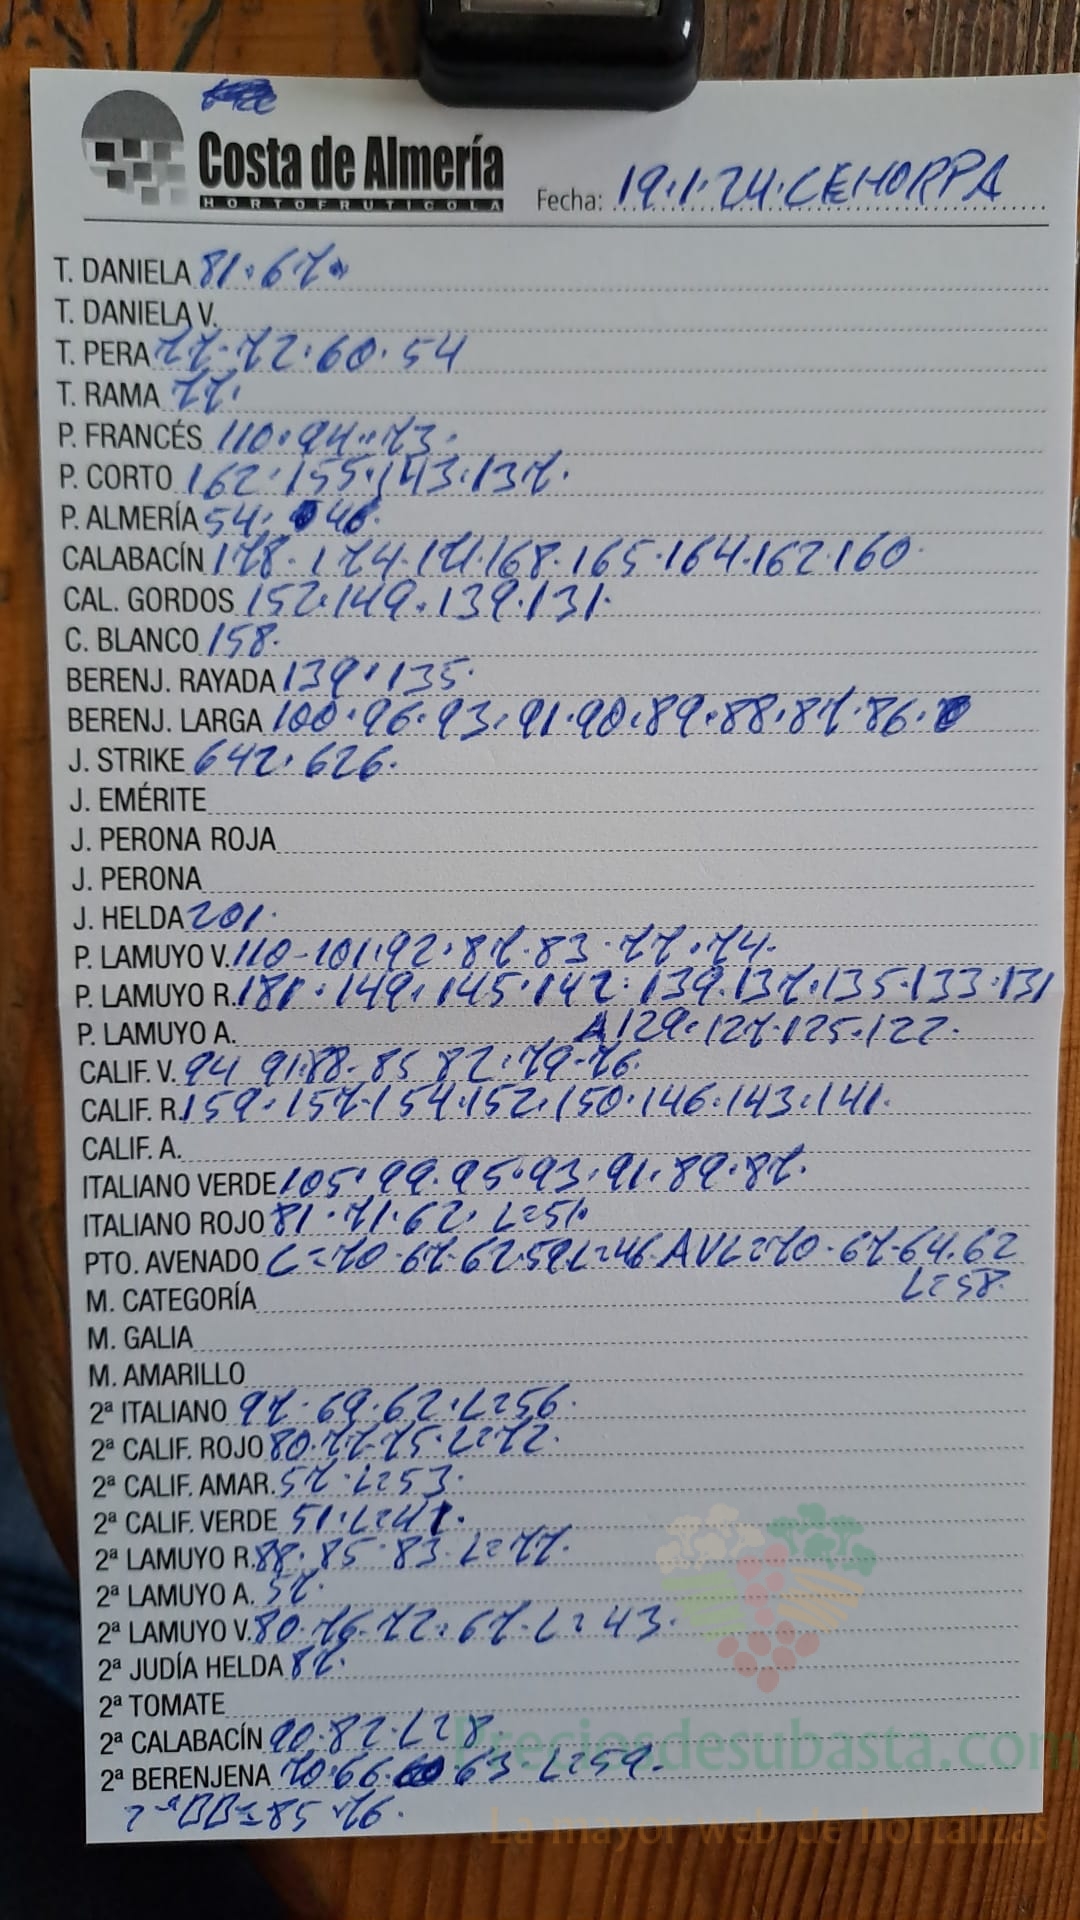 Costa de Almería
HORTOFRUTICOLA
Fecha: 19.1.24.CEHORPA
T. DANIELA 81.67.
T. DANIELA V.
T. PERA 77.72.60.54
T. RAMA 77.
P. FRANCÉS 110.94.73.
P. CORTO 162.155.143.137.
P. ALMERÍA 54. 46.
CALABACÍN 178.174.171.168.165.164.162.160.
CAL. GORDOS 152.149.139.131.
C. BLANCO 158.
BERENJ. RAYADA 139.135.
BERENJ. LARGA 100.96.93.91.90.89.88.87.86.
J. STRIKE 642.626.
J. EMÉRITE
J. PERONA ROJA
J. PERONA
J. HELDA 201.
P. LAMUYO V. 110-101.92.87.83.77.74.
P. LAMUYO R. 181.149.145.142.139.137.135.133.131
P. LAMUYO A. A129.127.125.122.
CALIF. V. 94 91.88.85 82.79-76.
CALIF. R. 159.157.154.152.150.146.143.141.
CALIF. A.
ITALIANO VERDE 105.99.95.93.91.89.87.
ITALIANO ROJO 81.71.62. L=51.
PTO. AVENADO C=70.67.62.59L=46.AVL=70.67.64.62
L=58.
M. CATEGORÍA
M. GALIA
M. AMARILLO
2ª ITALIANO 97.69.62.L=56.
2ª CALIF. ROJO 80.77.75.L=72.
2ª CALIF. AMAR. 57.L=53.
2ª CALIF. VERDE 51.L=41.
2ª LAMUYO R. 88.85.83.L=77.
2ª LAMUYO A. 57.
2ª LAMUYO V. 80.76.72.67.L=43.
2ª JUDÍA HELDA 87.
2ª TOMATE
2ª CALABACÍN 90.82.L=8
2ª BERENJENA 70.66. 63 L=59.
2ªBB=85 76.
Preciosdesubasta.com
La mayor web de hortalizas